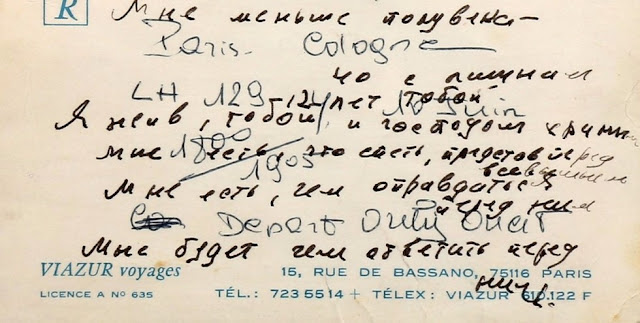 R
Мне меньше полувека —
Paris - Cologne
40 с лишним
LH 129 12 лет тобой 10 Juin
Я жив, тобой и господом храним
Мне есть, что спеть, представ перед
1800
1905
всевышним
Мне есть, чем оправдаться
перед ним
Depart Orly Ouest
Мне будет чем ответить перед
ним.
VIAZUR voyages
15, RUE DE BASSANO, 75116 PARIS
LICENCE A No 635
TÉL.: 723 55 14 + TÉLEX : VIAZUR 610.122 F